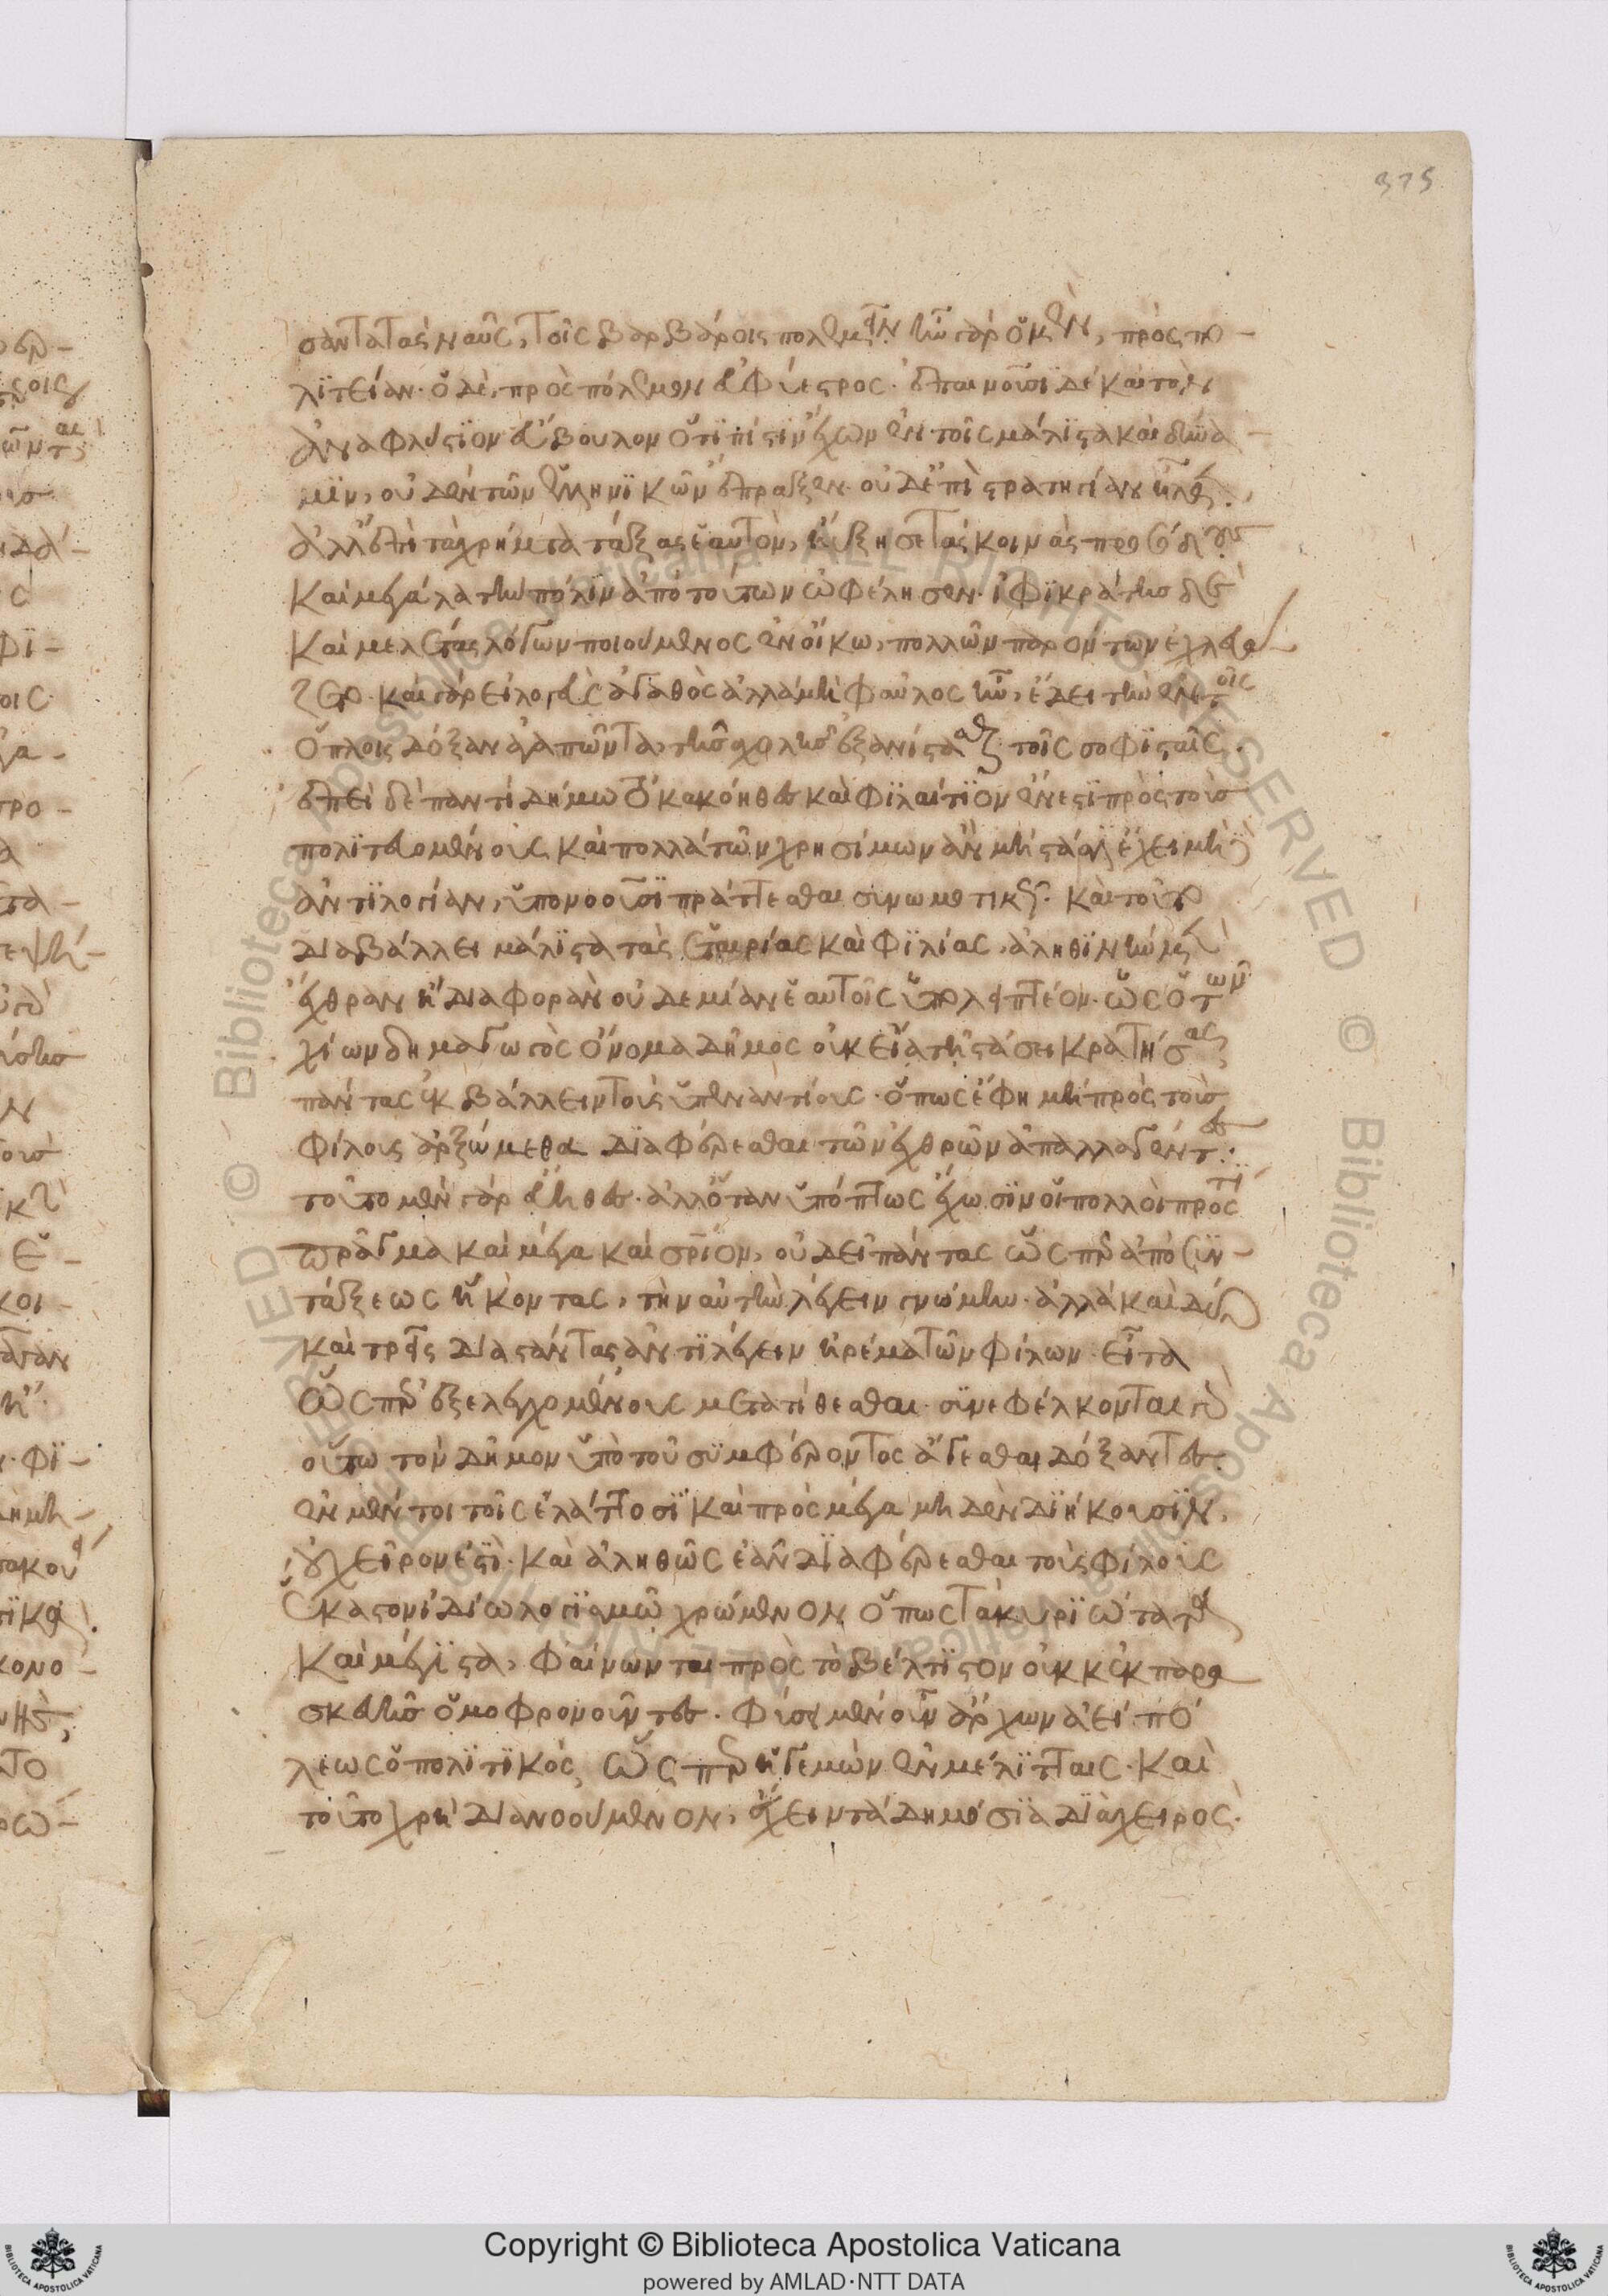 375
σαντα τὰς ναῦς, τοῖς βαρβάροις πολεμεῖν. ἦν γὰρ ὁ μὲν, πρὸς πο-
λιτείαν· ὁ δὲ, πρὸς πόλεμον εὐφυέστερος. ἐπαινοῦσι δὲ καὶ τὸν
ἀναφλύστιον εὔβουλον ὅτι πίστιν ἔχων ἐν τοῖς μάλιστα καὶ δύνα-
μιν, οὐδὲν τῶν ἑλληνικῶν ἔπραξεν. οὐδ' ἐπὶ στρατηγίαν ἦλθεν.
ἀλλ' ἐπὶ τὰ χρήματα τάξας ἑαυτὸν, ηὔξησε τὰς κοινὰς προσόδους
καὶ μεγάλα τὴν πόλιν ἀπὸ τούτων ὠφέλησεν. ἰφικράτης δὲ
καὶ μελέτας λόγων ποιούμενος ἐν οἴκω, πολλῶν παρόντων ἐχλευά
ζετο. καὶ γὰρ εἰ λογεὺς ἀγαθὸς ἀλλὰ μὴ φαῦλος ἦν, ἔδει τὴν ἐν τοῖς
ὅπλοις δόξαν ἀγαπῶντα, τῆς σχολῆς ἐξανίστασθαι τοῖς σοφισταῖς.
ἐπεὶ δὲ παντὶ δήμω τὸ κακόηθες καὶ φιλαίτιον ἔνεστι πρὸς τοὺς
πολιτευομένους καὶ πολλὰ τῶν χρησίμων ἂν μὴ στάσιν ἔχει μηδ'
ἀντιλογίαν, ὑπονοοῦσι πράττεσθαι συνωμοτικῶς. καὶ τοῦτο
διαβάλλει μάλιστα τὰς ἑταιρίας καὶ φιλίας, ἀληθινὴν μὲν
ἔχθραν ἢ διαφορὰν οὐδεμίαν ἑαυτοῖς ὑπολειπτέον. ὡς ὁ τῶν
χίων δημαγωγὸς ὄνομα δῆμος οὐκ εἴα τῇ στάσει κρατήσας
πάντας ἐκβάλλειν τοὺς ὑπεναντίους. ὅπως ἔφη μὴ πρὸς τοὺς
φίλους ἀρξώμεθα διαφέρεσθαι τῶν ἐχθρῶν ἀπαλλαγέντες.
τοῦτο μὲν γὰρ εὔηθες. ἀλλ' ὅταν ὑπόπτως ἔχωσιν οἱ πολλοὶ πρός τι
πρᾶγμα καὶ μέγα καὶ σριον, οὐ δεῖ πάντας ὥσπερ ἀπὸ συν-
τάξεως ἥκοντας, τὴν αὐτὴν λέγειν γνώμην. ἀλλὰ καὶ δύο
καὶ τρεῖς διαστάντας ἀντιλέγειν ἠρέμα τῶν φίλων. εἶτα
ὥσπερ ἐξελεγχομένους μετατίθεσθαι. συνεφέλκονται γὰρ
οὕτω τὸν δῆμον ὑπὸ τοῦ συμφέροντος ἄγεσθαι δόξαντες.
ἐν μέντοι τοῖς ἐλάττοσι καὶ πρὸς μέγα μηδὲν διήκουσιν,
οὐ χεῖρον ἐστὶ. καὶ ἀληθῶς ἐᾶν διαφέρεσθαι τοὺς φίλους
ἕκαστον ἰδίω λογισμῶ χρώμενον ὅπως τὰ κυριώτατα
καὶ μέγιστα, φαίνωνται πρὸς τὸ βέλτιστον οὐκ ἐκ παρα
σκευῆς ὁμοφρονοῦντες. φύσει μὲν οὖν ἄρχων ἀεὶ πό
λεως ὁ πολιτικὸς, ὥσπερ ἡγεμὼν ἐν μελίτταις. καὶ
τοῦτο χρὴ διανοούμενον, ἔχειν τὰ δημόσια διὰ χειρός.
Copyright © Biblioteca Apostolica Vaticana
powered by AMLAD·NTT DATA